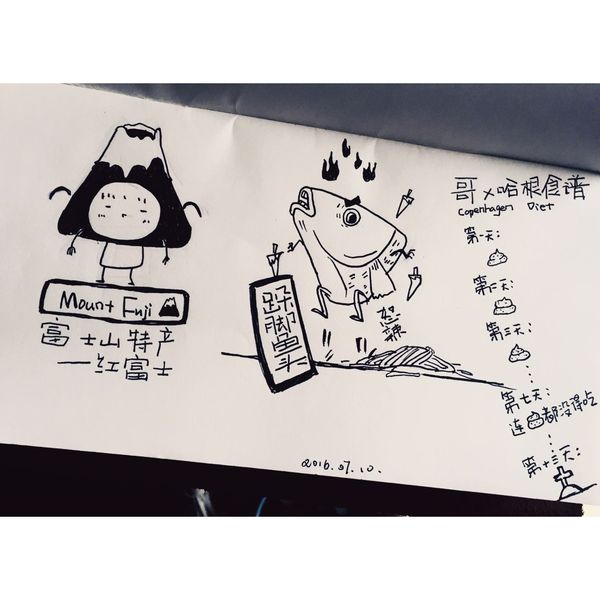 Mount Fuji
富士山特产
一红富士
跺脚鱼头
怒辣
2016.07.10.
哥×哈根食谱
Copenhagen Diet
第一天:
第二天:
第三天:
第七天:
连都没得吃
第十三天: